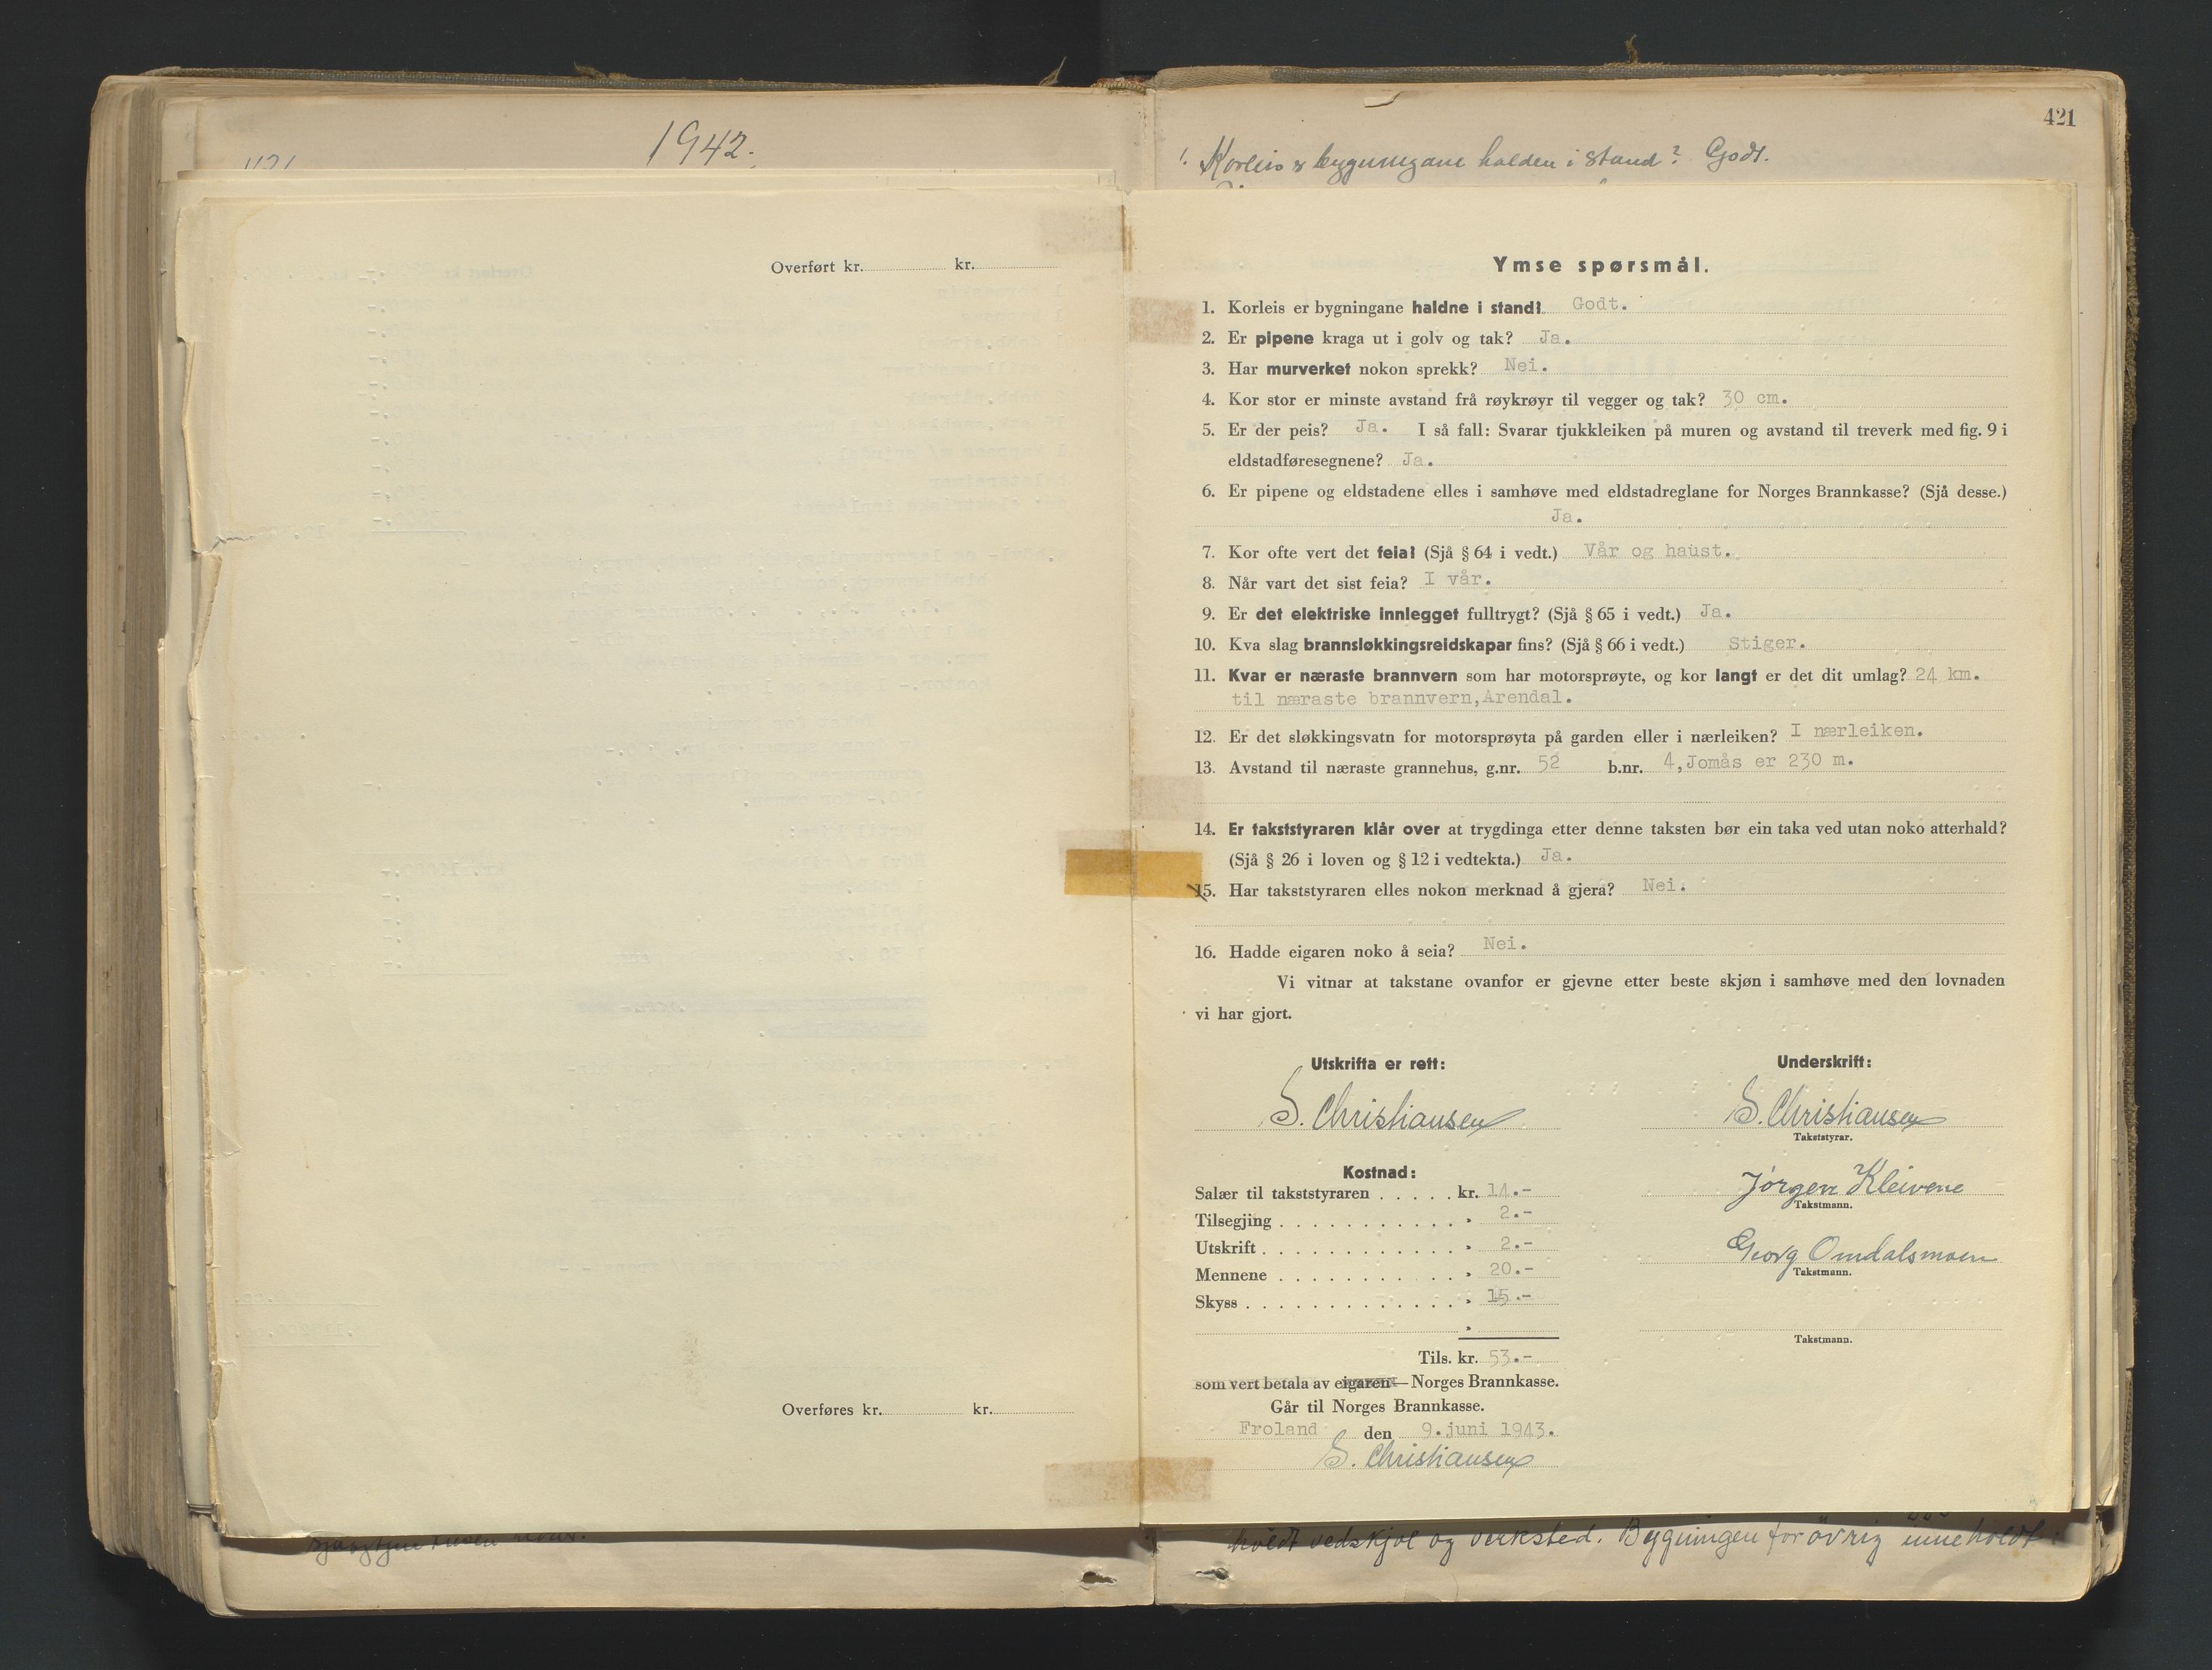 1942.
Overført kr. kr.
Overføres kr. kr.
421
1. Korleis er bygningane halden i stand? Godt.
Ymse spørsmål.
1. Korleis er bygningane haldne i stand? Godt.
2. Er pipene kraga ut i golv og tak? Ja.
3. Har murverket nokon sprekk? Nei.
4. Kor stor er minste avstand frå røykrøyr til vegger og tak? 30 cm.
5. Er der peis? Ja. I så fall: Svarar tjukkleiken på muren og avstand til treverk med fig. 9 i
eldstadføresegnene? Ja.
6. Er pipene og eldstadene elles i samhøve med eldstadreglane for Norges Brannkasse? (Sjå desse.)
Ja.
7. Kor ofte vert det feia? (Sjå § 64 i vedt.) Vår og haust.
8. Når vart det sist feia? I vår.
9. Er det elektriske innlegget fulltrygt? (Sjå § 65 i vedt.) Ja.
10. Kva slag brannsløkkingsreidskapar fins? (Sjå § 66 i vedt.) Stiger.
11. Kvar er næraste brannvern som har motorsprøyte, og kor langt er det dit umlag? 24 km.
til næraste brannvern,Arendal.
12. Er det sløkkingsvatn for motorsprøyta på garden eller i nærleiken? I nærleiken.
13. Avstand til næraste grannehus, g.nr. 52 b.nr. 4,Jomås er 230 m.
14. Er takststyraren klår over at trygdinga etter denne taksten bør ein taka ved utan noko atterhald?
(Sjå § 26 i loven og § 12 i vedtekta.) Ja.
15. Har takststyraren elles nokon merknad å gjera? Nei.
16. Hadde eigaren noko å seia? Nei.
Vi vitnar at takstane ovanfor er gjevne etter beste skjøn i samhøve med den lovnaden
vi har gjort.
Utskrifta er rett:
S. Christiansen
Underskrift:
S. Christiansen
Takststyrar.
Jörgen Kleivene
Takstmann.
Georg Omdalsmoen
Takstmann.
Takstmann.
Kostnad:
Salær til takststyraren . . . . . kr. 14.-
Tilsegjing . . . . . . . . . . . . » 2.-
Utskrift . . . . . . . . . . . . . » 2.-
Mennene . . . . . . . . . . . . » 20.-
Skyss . . . . . . . . . . . . . . » 15.-
»
Tils. kr. 53.-
som vert betala av eigaren — Norges Brannkasse.
Går til Norges Brannkasse.
Froland den 9.juni 1943.
S. Christiansen
holdt vedskjol og verksted. Bygningen for övrig inneholdt: